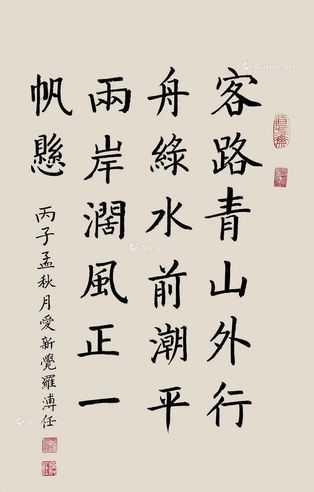 客路青山外行
舟綠水前潮平
兩岸濶風正一
帆懸
丙子孟秋月愛新覺羅溥任